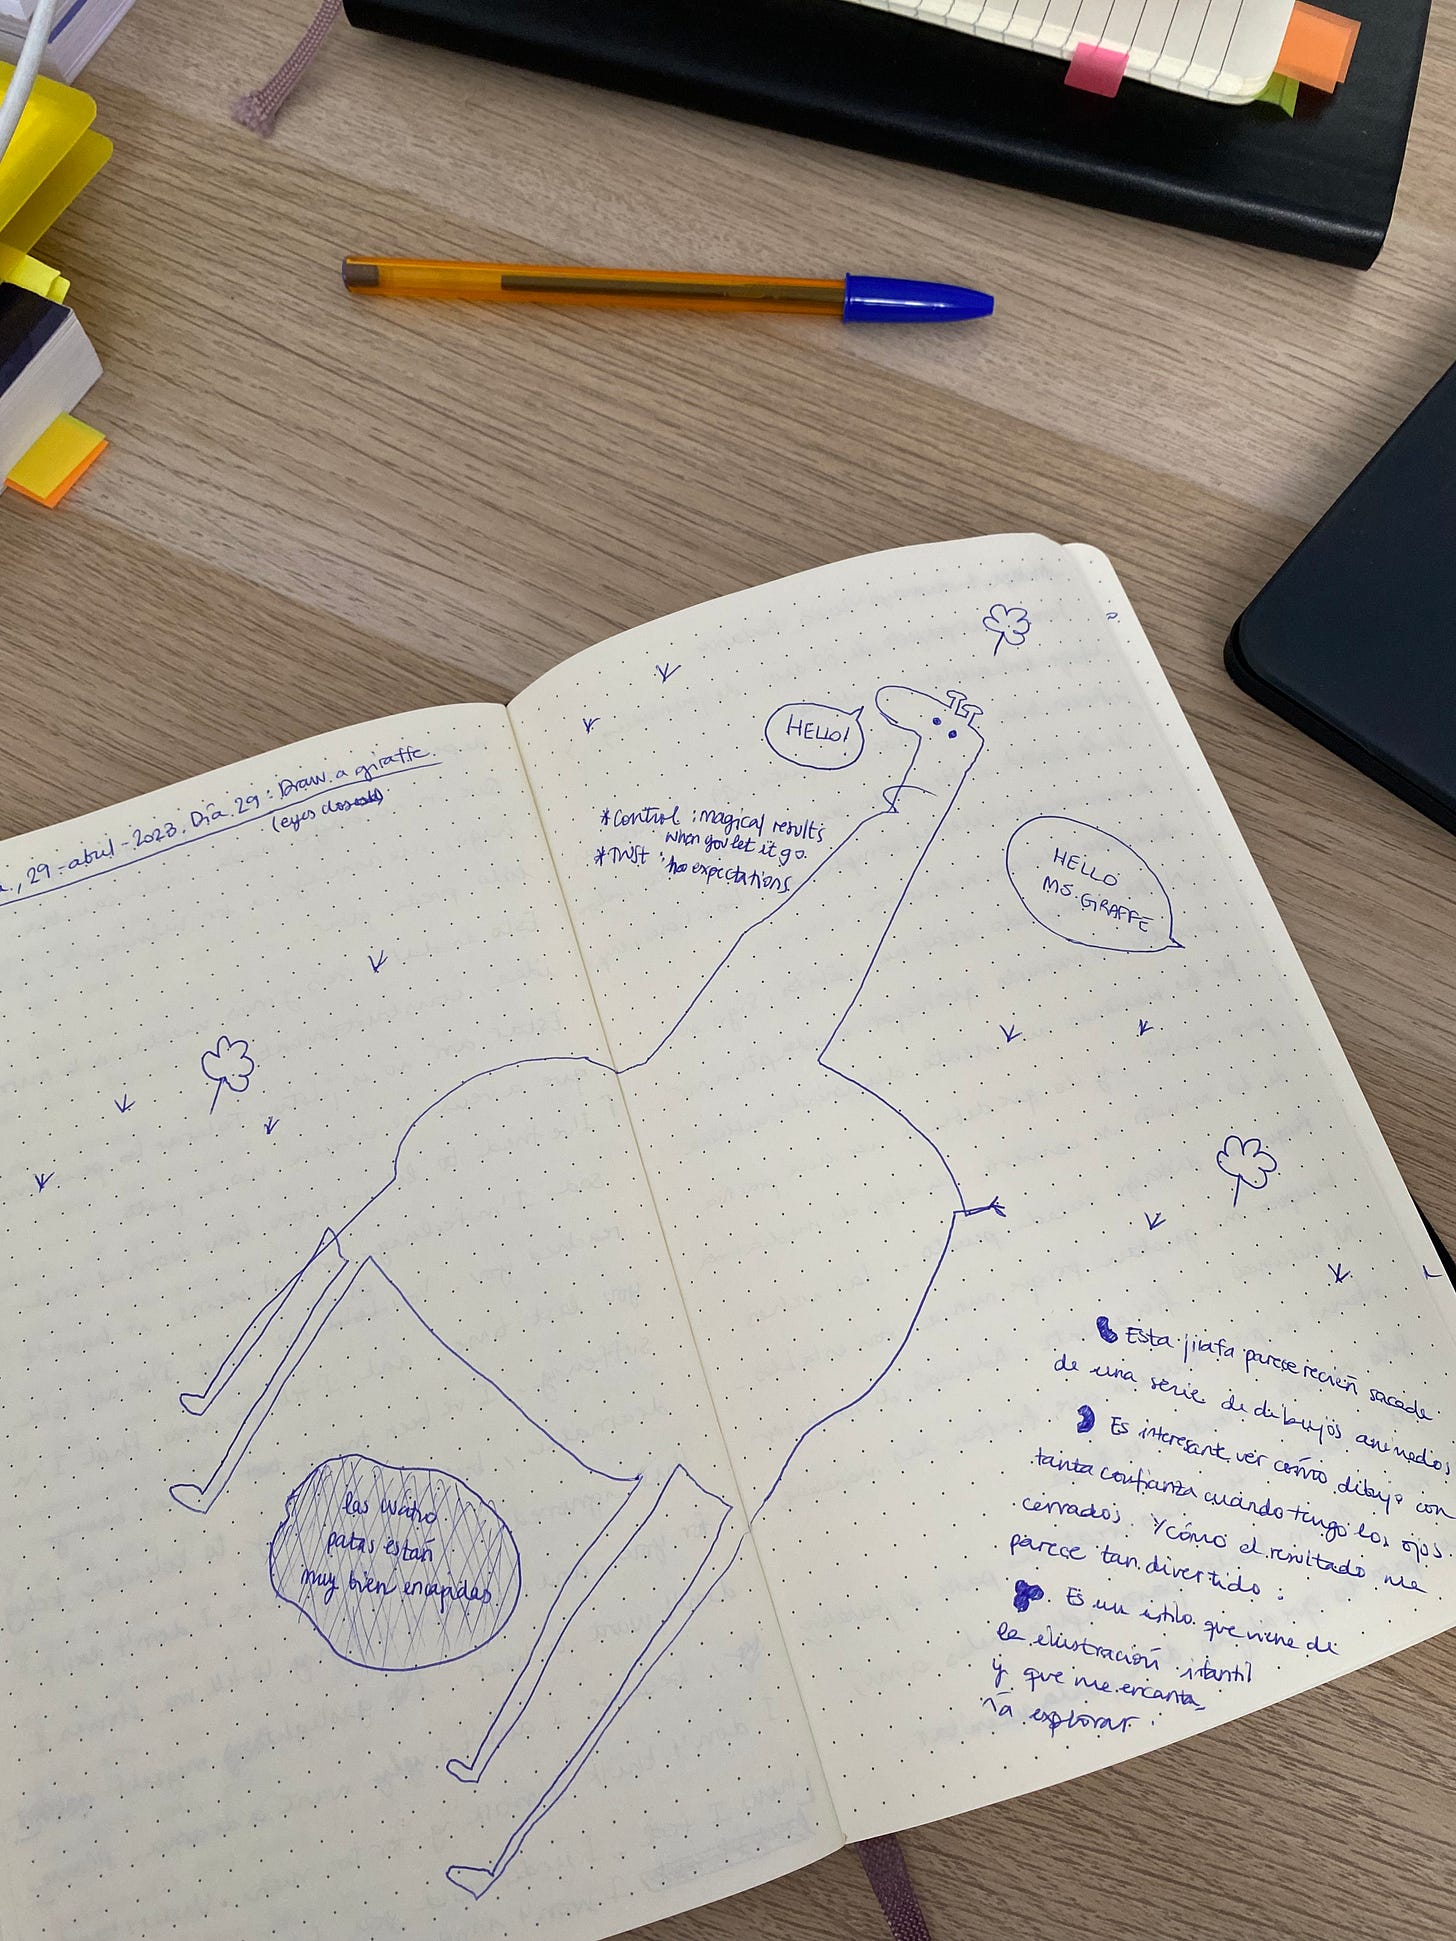 29-abril-2023. Día 29: Draw a giraffe.
(eyes closed)
HELLO!
*Control : magical results
when you let it go.
*Trust : no expectations
HELLO
MS. GIRAFFE
Esta jirafa parece recién sacada
de una serie de dibujos animados
Es interesante ver cómo dibujo con
tanta confianza cuándo tengo los ojos
cerrados. Y cómo el resultado me
parece tan divertido:
Es un estilo que viene de
la ilustración
y que me encanta
explorar.
las cuatro
patas están
muy bien encajadas